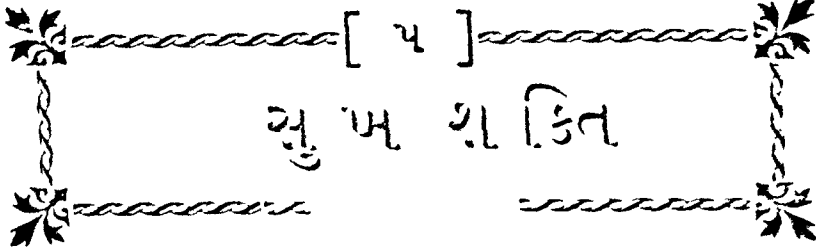 [ ૫ ]
સુખ શક્તિ